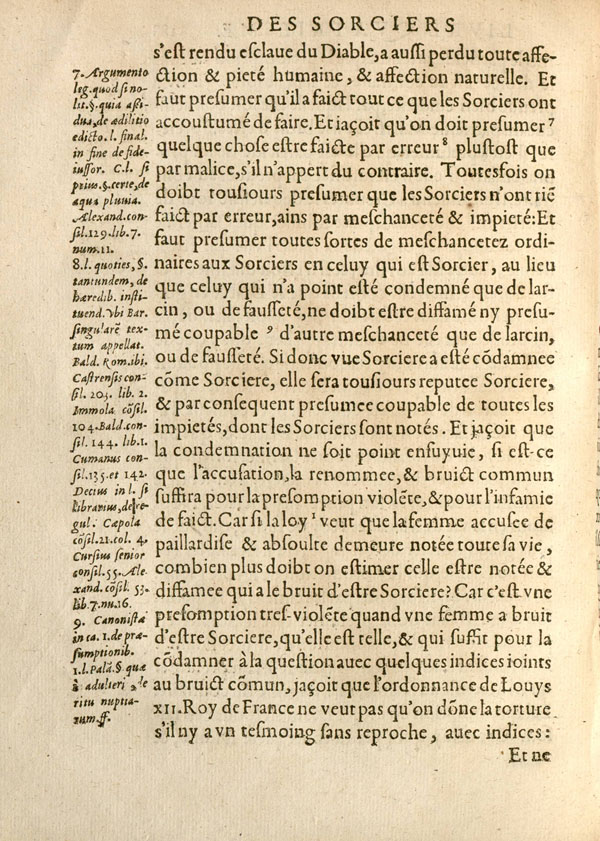 DES SORCIERS
s'est rendu esclaue du Diable, a aussi perdu toute affe-
ction & pieté humaine, & affection naturelle. Et
faut presumer qu'il a faict tout ce que les Sorciers ont
accoustumé de faire. Et iaçoit qu'on doit presumer 7
quelque chose estre faicte par erreur 8 plustost que
par malice, s'il n'appert du contraire. Toutesfois on
doibt tousiours presumer que les Sorciers n'ont riẽ
faict par erreur, ains par meschanceté & impieté: Et
faut presumer toutes sortes de meschancetez ordi-
naires aux Sorciers en celuy qui est Sorcier, au lieu
que celuy qui n'a point esté condemné que de lar-
cin, ou de fausseté, ne doibt estre diffamé ny presu-
mé coupable 9 d'autre meschanceté que de larcin,
ou de fausseté. Si donc vue Sorciere a esté cõdamnee
cõme Sorciere, elle sera tousiours reputee Sorciere,
& par consequent presumee coupable de toutes les
impietés, dont les Sorciers sont notés. Et jaçoit que
la condemnation ne soit point ensuyuie, si est-ce
que l'accusation, la renommee, & bruict commun
suffira pour la presomption violẽte, & pour l'infamie
de faict. Car si la loy 1 veut que la femme accusee de
paillardise & absoulte demeure notée toute sa vie,
combien plus doibt on estimer celle estre notée &
diffamee qui a le bruit d'estre Sorciere? Car c'est vne
presomption tres-violẽte quand vne femme a bruit
d'estre Sorciere, qu'elle est telle, & qui suffit pour la
cõdamner à la question auec quelques indices ioints
au bruict cõmun, jaçoit que l'ordonnance de Louys
XII. Roy de France ne veut pas qu'on dõne la torture
s'il ny a vn tesmoing sans reproche, auec indices:
Et ne
7. Argumento
leg. quod si no-
lit. §. quia assi-
dua, de ædilitio
edicto. l. final.
in fine de fide-
iussor. C. l. si
prius. §. certe, de
aqua pluuia.
Alexand. con-
sil. 129. lib. 7.
num. 11.
8. l. quoties, §.
tantundem, de
hæredib. insti-
tuend. Vbi Bar.
singularẽ tex-
tum appellat.
Bald. Rom. ibi.
Castrensis con-
sil. 205. lib. 2.
Immola cõsil.
104. Bald. con-
sil. 144. lib. 1.
Cumanus con-
sil. 135. et 142.
Decius in l. si
librarius, de re-
gul. Capola
cõsil. 21. col. 4.
Cursius senior
consil. 55. Ale-
xand. cõsil. 53.
lib. 7. nu. 16.
9. Canonistæ
in ca. 1. de præ-
sumptionib.
1. l. Palã. §. quæ
à adulteri, de
ritu nuptia-
rum. ff.